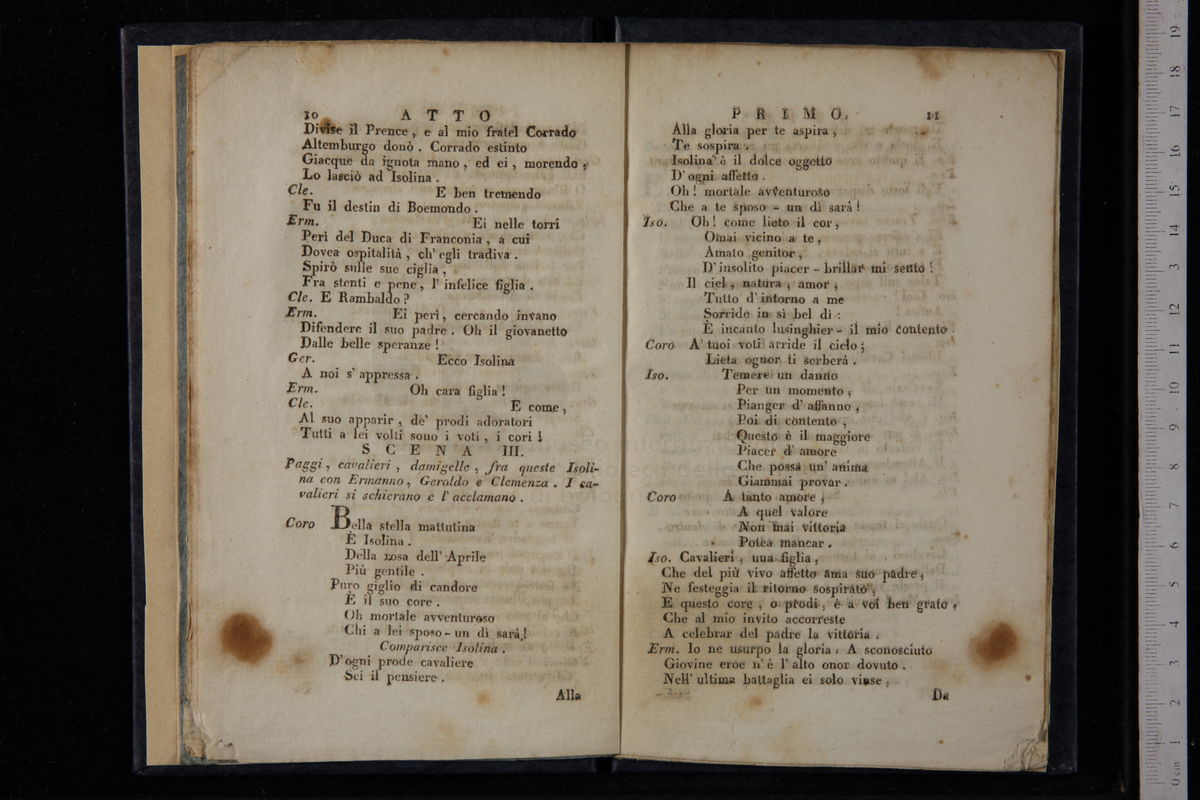 10 ATTO
Divise il Prence, e al mio fratel Corrado
Altemburgo donò. Corrado estinto
Giacque da ignota mano, ed ei, morendo,
Lo lasciò ad Isolina.
Cle. E ben tremendo
Fu il destin di Boemondo.
Erm. Ei nelle torri
Perì del Duca di Franconia, a cui
Dovea ospitalità, ch' egli tradiva.
Spirò sulle sue ciglia,
Fra stenti e pene, l' infelice figlia.
Cle. E Rambaldo?
Erm. Ei perì, cercando invano
Difendere il suo padre. Oh il giovanetto
Dalle belle speranze!
Ger. Ecco Isolina
A noi s' appressa.
Erm. Oh cara figlia!
Cle. E come,
Al suo apparir, de' prodi adoratori
Tutti a lei volti sono i voti, i cori!
SCENA III.
Paggi, cavalieri, damigelle, fra queste Isoli-
na con Ermanno, Geroldo e Clemenza. I ca-
valieri si schierano e l' acclamano.
Coro Bella stella mattutina
È Isolina.
Della rosa dell' Aprile
Più gentile.
Puro giglio di candore
È il suo core.
Oh mortale avventuroso
Chi a lei sposo - un dì sarà!
Comparisce Isolina.
D'ogni prode cavaliere
Sei il pensiere.
Alla
PRIMO. 11
Alla gloria per te aspira,
Te sospira.
Isolina è il dolce oggetto
D' ogni affetto.
Oh! mortale avventuroso
Che a te sposo - un dì sarà!
Iso. Oh! come lieto il cor,
Omai vicino a te,
Amato genitor,
D' insolito piacer - brillar mi sento!
Il ciel, natura, amor,
Tutto d' intorno a me
Sorride in sì bel dì:
È incanto lusinghier - il mio contento.
Coro A' tuoi voti arride il cielo;
Lieta ognor ti serberà.
Iso. Temere un danno
Per un momento,
Pianger d' affanno,
Poi di contento,
Questo è il maggiore
Piacer d' amore
Che possa un' anima
Giammai provar.
Coro A tanto amore,
A quel valore
Non mai vittoria
Potea mancar.
Iso. Cavalieri, una figlia,
Che del più vivo affetto ama suo padre,
Ne festeggia il ritorno sospirato,
E questo core, o prodi, è a voi ben grato,
Che al mio invito accorreste
A celebrar del padre la vittoria.
Erm. Io ne usurpo la gloria. A sconosciuto
Giovine eroe n' è l' alto onor dovuto.
Nell' ultima battaglia ei solo vinse,
Da
0 cm 1 2 3 4 5 6 7 8 9 10 11 12 13 14 15 16 17 18 19